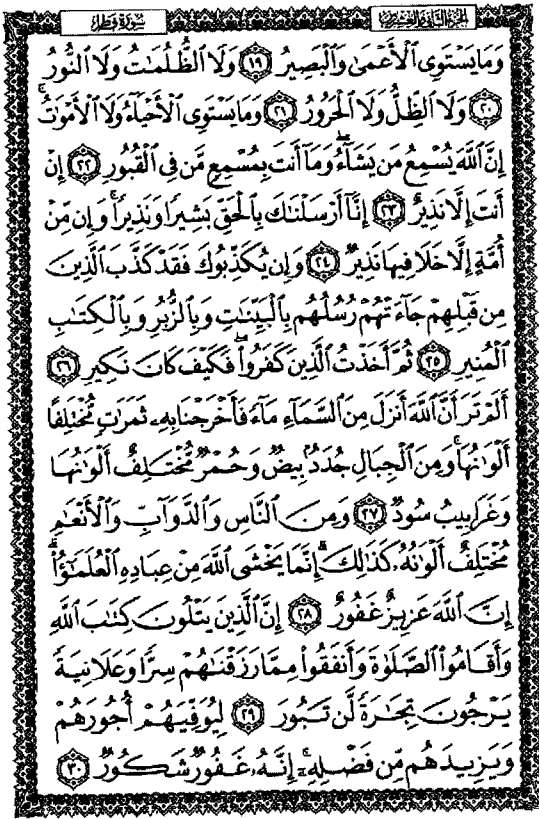 سُورَةُ فَاطِرٍ
الجُزْءُ الثَّانِي وَالعِشْرُونَ
وَمَا يَسْتَوِي الْأَعْمَىٰ وَالْبَصِيرُ ۝١٩ وَلَا الظُّلُمَاتُ وَلَا النُّورُ
۝٢٠ وَلَا الظِّلُّ وَلَا الْحَرُورُ ۝٢١ وَمَا يَسْتَوِي الْأَحْيَاءُ وَلَا الْأَمْوَٰتُ ۚ
إِنَّ اللَّهَ يُسْمِعُ مَن يَشَاءُ ۖ وَمَا أَنتَ بِمُسْمِعٍ مَّن فِي الْقُبُورِ ۝٢٢ إِنْ
أَنتَ إِلَّا نَذِيرٌ ۝٢٣ إِنَّا أَرْسَلْنَٰكَ بِالْحَقِّ بَشِيرًا وَنَذِيرًا ۚ وَإِن مِّنْ
أُمَّةٍ إِلَّا خَلَا فِيهَا نَذِيرٌ ۝٢٤ وَإِن يُكَذِّبُوكَ فَقَدْ كَذَّبَ الَّذِينَ
مِن قَبْلِهِمْ جَاءَتْهُمْ رُسُلُهُم بِالْبَيِّنَٰتِ وَبِالزُّبُرِ وَبِالْكِتَٰبِ
الْمُنِيرِ ۝٢٥ ثُمَّ أَخَذْتُ الَّذِينَ كَفَرُوا ۖ فَكَيْفَ كَانَ نَكِيرِ ۝٢٦
أَلَمْ تَرَ أَنَّ اللَّهَ أَنزَلَ مِنَ السَّمَاءِ مَاءً فَأَخْرَجْنَا بِهِ ثَمَرَٰتٍ مُّخْتَلِفًا
أَلْوَٰنُهَا ۚ وَمِنَ الْجِبَالِ جُدَدٌ بِيضٌ وَحُمْرٌ مُّخْتَلِفٌ أَلْوَٰنُهَا
وَغَرَابِيبُ سُودٌ ۝٢٧ وَمِنَ النَّاسِ وَالدَّوَابِّ وَالْأَنْعَٰمِ
مُخْتَلِفٌ أَلْوَٰنُهُ كَذَٰلِكَ ۗ إِنَّمَا يَخْشَى اللَّهَ مِنْ عِبَادِهِ الْعُلَمَٰؤُا ۗ
إِنَّ اللَّهَ عَزِيزٌ غَفُورٌ ۝٢٨ إِنَّ الَّذِينَ يَتْلُونَ كِتَٰبَ اللَّهِ
وَأَقَامُوا الصَّلَوٰةَ وَأَنفَقُوا مِمَّا رَزَقْنَٰهُمْ سِرًّا وَعَلَانِيَةً
يَرْجُونَ تِجَٰرَةً لَّن تَبُورَ ۝٢٩ لِيُوَفِّيَهُمْ أُجُورَهُمْ
وَيَزِيدَهُم مِّن فَضْلِهِ ۚ إِنَّهُ غَفُورٌ شَكُورٌ ۝٣٠